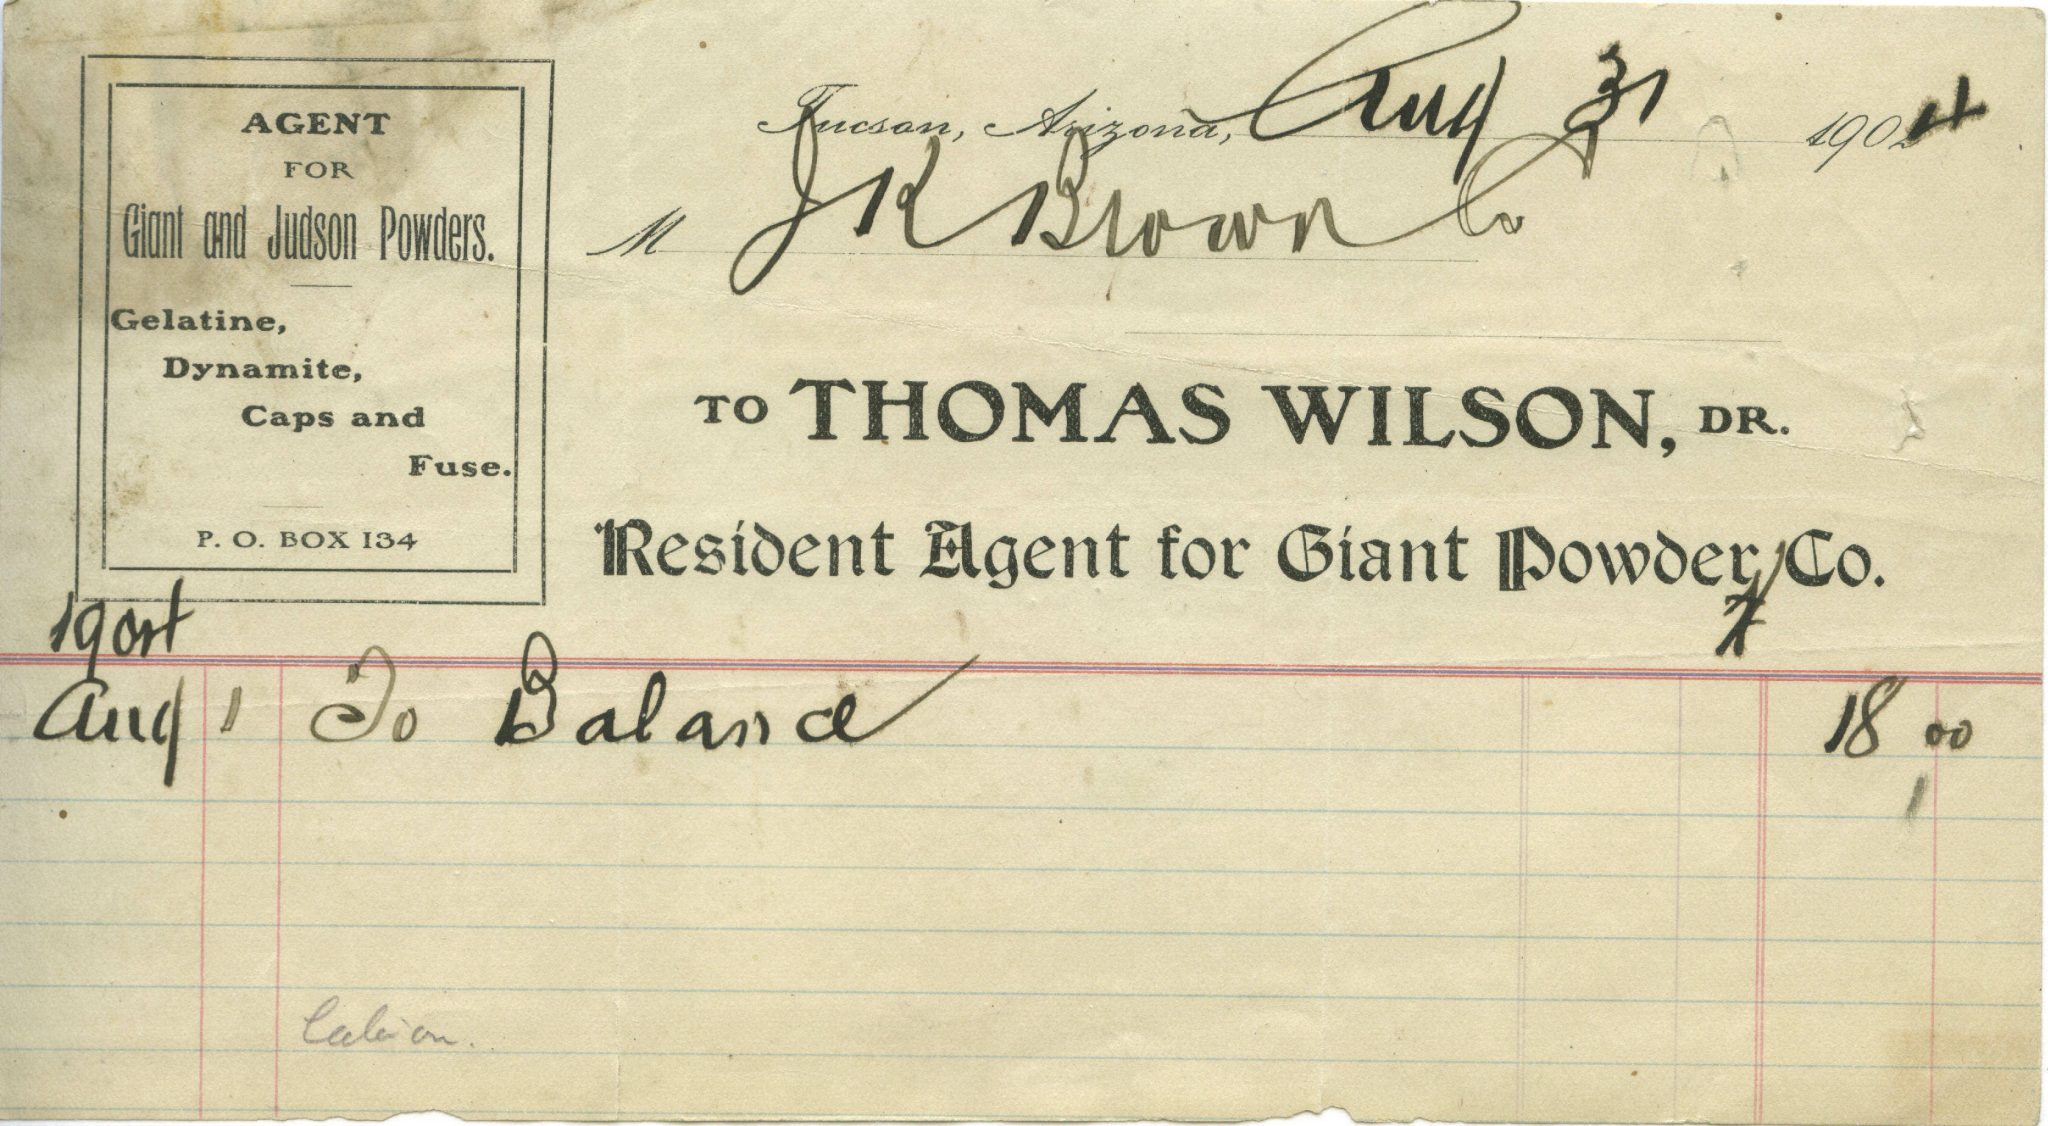 AGENT
FOR
Giant and Judson Powders.
Gelatine,
Dynamite,
Caps and
Fuse.
P. O. BOX 134
Tucson, Arizona, Aug 31 1904
M J K Brown Co
TO THOMAS WILSON, DR.
Resident Agent for Giant Powder Co.
1904
Aug 1 To Balance 18 00